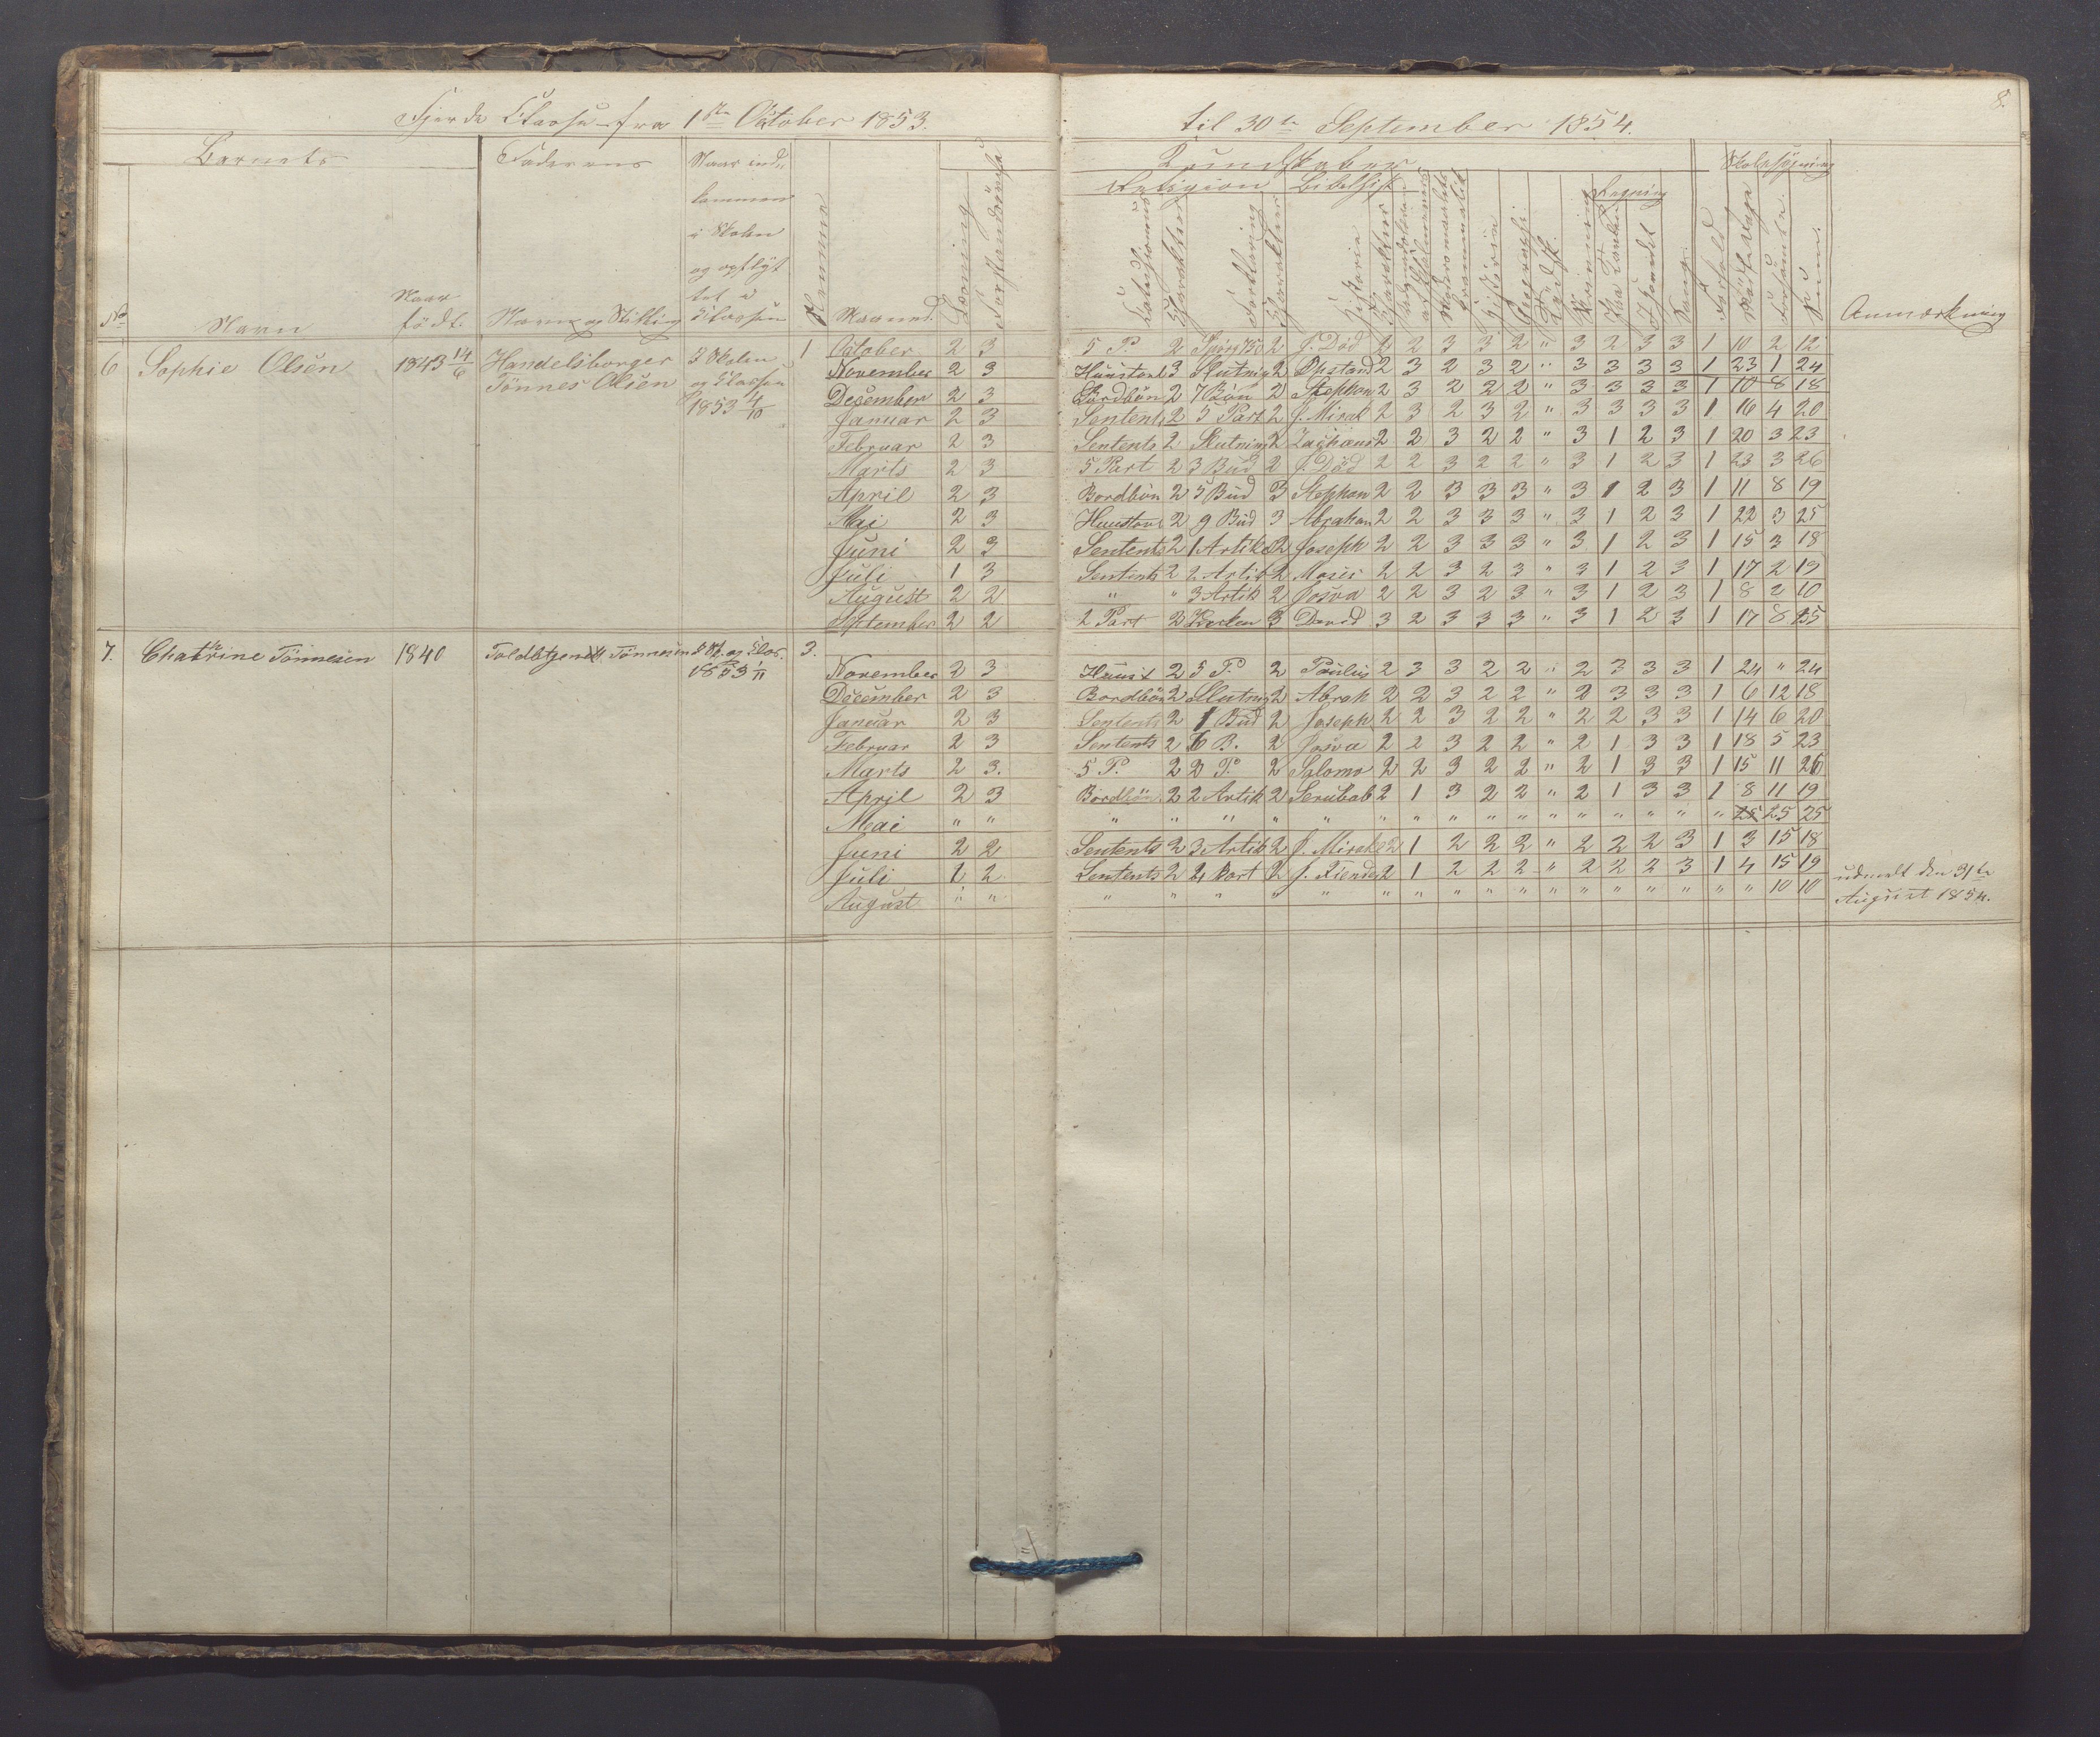 8.
Fjerde Classe fra 1ste October 1853. til 30te September 1854.
Barnets Faderens Naar ind- Kundskaber Skolesøgning
kommen Religion Bibelhist. Regning
i Skolen
og opflyt
tet i
No Navn Naar født. Navn og Stilling Classen Nummer Maaned. Læsning Forstandsøvelse Catechismus Charakter Forklaring Charakter Historie Charakter Historie Geographi Skrivning Paa Tavlen I Hovedet Sang. Forhold Forsømte Sum. Anmærkning
6 Sophie Olsen 1843 14/6 Handelsborger I Skolen 1 October 2 3 5 P. 2 2 J. Död 2 2 3 3 2 " 3 2 3 3 1 10 2 12
Tönnes Olsen og Classen November 2 3 Huustavl 3 Slutning 2 Opstand 2 3 2 3 2 " 3 3 3 3 1 23 1 24
1853 4/10 December 2 3 Bordbön 2 7 Bön 2 Stephan 2 3 2 2 2 " 3 3 3 3 1 10 8 18
Januar 2 3 Sentents 2 5 Part 2 J. Mirak 2 3 2 3 2 " 3 3 3 3 1 16 4 20
Februar 2 3 Sentents 2 Slutning 2 Zachæus 2 2 3 2 2 " 3 1 2 3 1 20 3 23
Marts 2 3 5 Part 2 3 Bud 2 J. Död 2 2 3 2 2 " 3 1 2 3 1 23 3 26
April 2 3 Bordbön 2 5 Bud 3 Stephan 2 2 3 3 3 " 3 1 2 3 1 11 8 19
Mai 2 3 Huustavl 2 9 Bud 3 Abraham 2 2 3 3 3 " 3 1 2 3 1 22 3 25
Juni 2 3 Sentents 2 1 Artik 2 Joseph 2 2 3 3 3 " 3 1 2 3 1 15 3 18
Juli 1 3 Sentents 2 2 Artik 2 Moses 2 2 3 2 3 " 3 1 2 3 1 17 2 19
August 2 2 " " 3 Artik 2 Josva 2 2 3 2 3 " 3 1 2 3 1 8 2 10
September 2 2 2 Part 3 3 David 3 2 3 3 3 " 3 1 2 3 1 17 8 25
7. Chatrine Tönnesen 1840 Toldbtjenest. Tönnesen I Sk. og Clas. 3.
1853 1/11 November 2 3 Huust 2 5 P. 2 Paulus 2 3 3 2 2 " 2 3 3 3 1 24 " 24
December 2 3 Bordbön 2 Slutning 2 Abrah 2 2 3 2 2 " 2 3 3 3 1 6 12 18
Januar 2 3 Sentents 2 1 Bud 2 Joseph 2 2 3 2 2 " 2 2 3 3 1 14 6 20
Februar 2 3 Sentents 2 6 B. 2 Josva 2 2 3 2 2 " 2 1 3 3 1 18 5 23
Marts 2 3. 5 P. 2 2 P. 2 Salomo 2 2 3 2 2 " 2 1 3 3 1 15 11 26
April 2 3 Bordbön 2 2 Artik 2 Serubab 2 1 3 2 2 " 2 1 3 3 1 8 11 19
Mai " " " " " " " " " " " " " " " " " " 25 25 25
Juni 2 2 Sentents 2 3 Artik 2 J. Mirakl 2 1 2 2 2 " 2 2 2 3 1 3 15 18
Juli 1 2 Sentents 2 4 Part 2 J. Fiender 2 1 2 2 2 " 2 2 2 3 1 4 15 19 udmeldt den 31te
August " " " " " " " " " " " " " " " " " " " 10 10 August 1854.